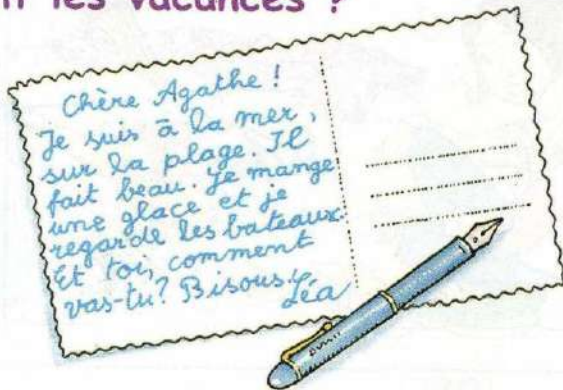 les vacances ?
Chère Agathe !
Je suis à la mer,
sur la plage. Il
fait beau. Je mange
une glace et je
regarde les bateaux.
Et toi, comment
vas-tu? Bisous!
Léa